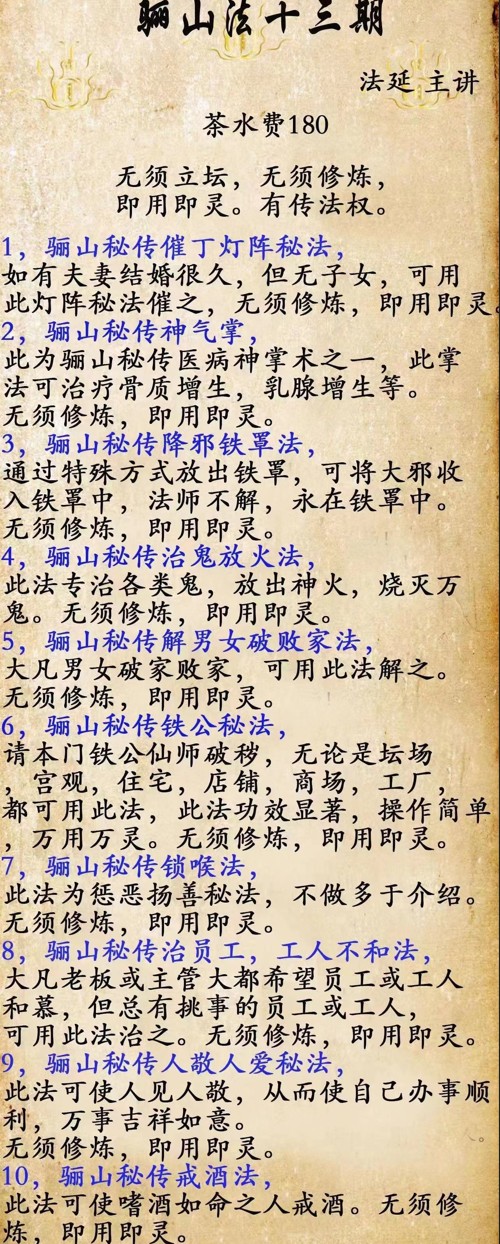 骊山法十三期
法延 主讲
茶水费180
无须立坛，无须修炼，
即用即灵。有传法权。
1，骊山秘传催丁灯阵秘法，
如有夫妻结婚很久，但无子女，可用
此灯阵秘法催之，无须修炼，即用即灵。
2，骊山秘传神气掌，
此为骊山秘传医病神掌术之一，此掌
法可治疗骨质增生，乳腺增生等。
无须修炼，即用即灵。
3，骊山秘传降邪铁罩法，
通过特殊方式放出铁罩，可将大邪收
入铁罩中，法师不解，永在铁罩中。
无须修炼，即用即灵。
4，骊山秘传治鬼放火法，
此法专治各类鬼，放出神火，烧灭万
鬼。无须修炼，即用即灵。
5，骊山秘传解男女破败家法，
大凡男女破家败家，可用此法解之。
无须修炼，即用即灵。
6，骊山秘传铁公秘法，
请本门铁公仙师破秽，无论是坛场
，宫观，住宅，店铺，商场，工厂，
都可用此法，此法功效显著，操作简单
，万用万灵。无须修炼，即用即灵。
7，骊山秘传锁喉法，
此法为惩恶扬善秘法，不做多于介绍。
无须修炼，即用即灵。
8，骊山秘传治员工，工人不和法，
大凡老板或主管大都希望员工或工人
和慕，但总有挑事的员工或工人，
可用此法治之。无须修炼，即用即灵。
9，骊山秘传人敬人爱秘法，
此法可使人见人敬，从而使自己办事顺
利，万事吉祥如意。
无须修炼，即用即灵。
10，骊山秘传戒酒法，
此法可使嗜酒如命之人戒酒。无须修
炼，即用即灵。